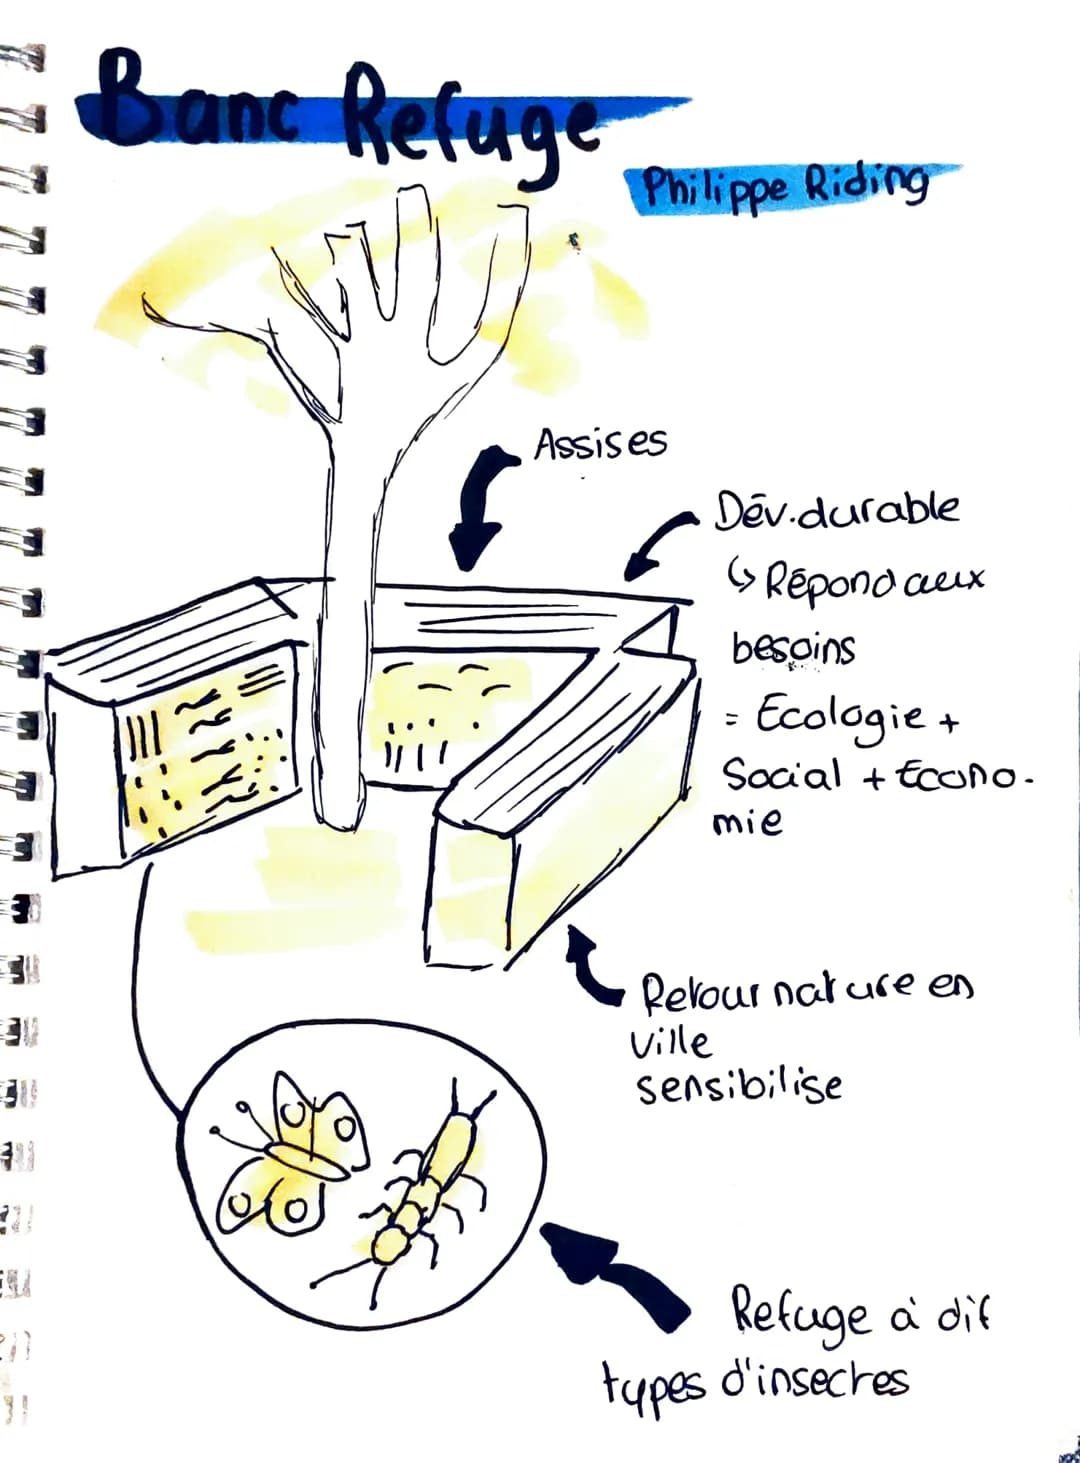 Banc Refuge
Philippe Riding
Assises
Dév.durable
↳ Répond aux
besoins
= Ecologie +
Social + Écono-
mie
Retour nature en
ville
sensibilise
Refuge à dif
types d'insectes